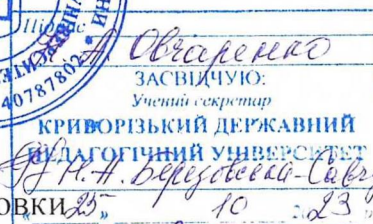 Підпис
А. Овчаренко
ЗАСВІДЧУЮ:
Учений секретар
КРИВОРІЗЬКИЙ ДЕРЖАВНИЙ
ПЕДАГОГІЧНИЙ УНІВЕРСИТЕТ
Н.А. Березовська-Савч
ОВКИ "25" 10 23
40787802